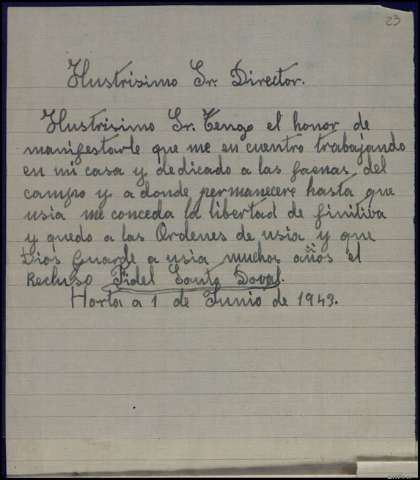 23
Ilustrisimo Sr. Director.
Ilustrisimo Sr. Tengo el honor de
manifestarle que me en cuentro trabajando
en mi casa y dedicado a las faenas del
campo y a donde permanecere hasta que
usia me conceda la libertad de finitiva
y quedo a las Ordenes de usia y que
Dios Guarde a usia muchos años el
Recluso Fidel Souto Doval.
Horta a 1 de Junio de 1943.